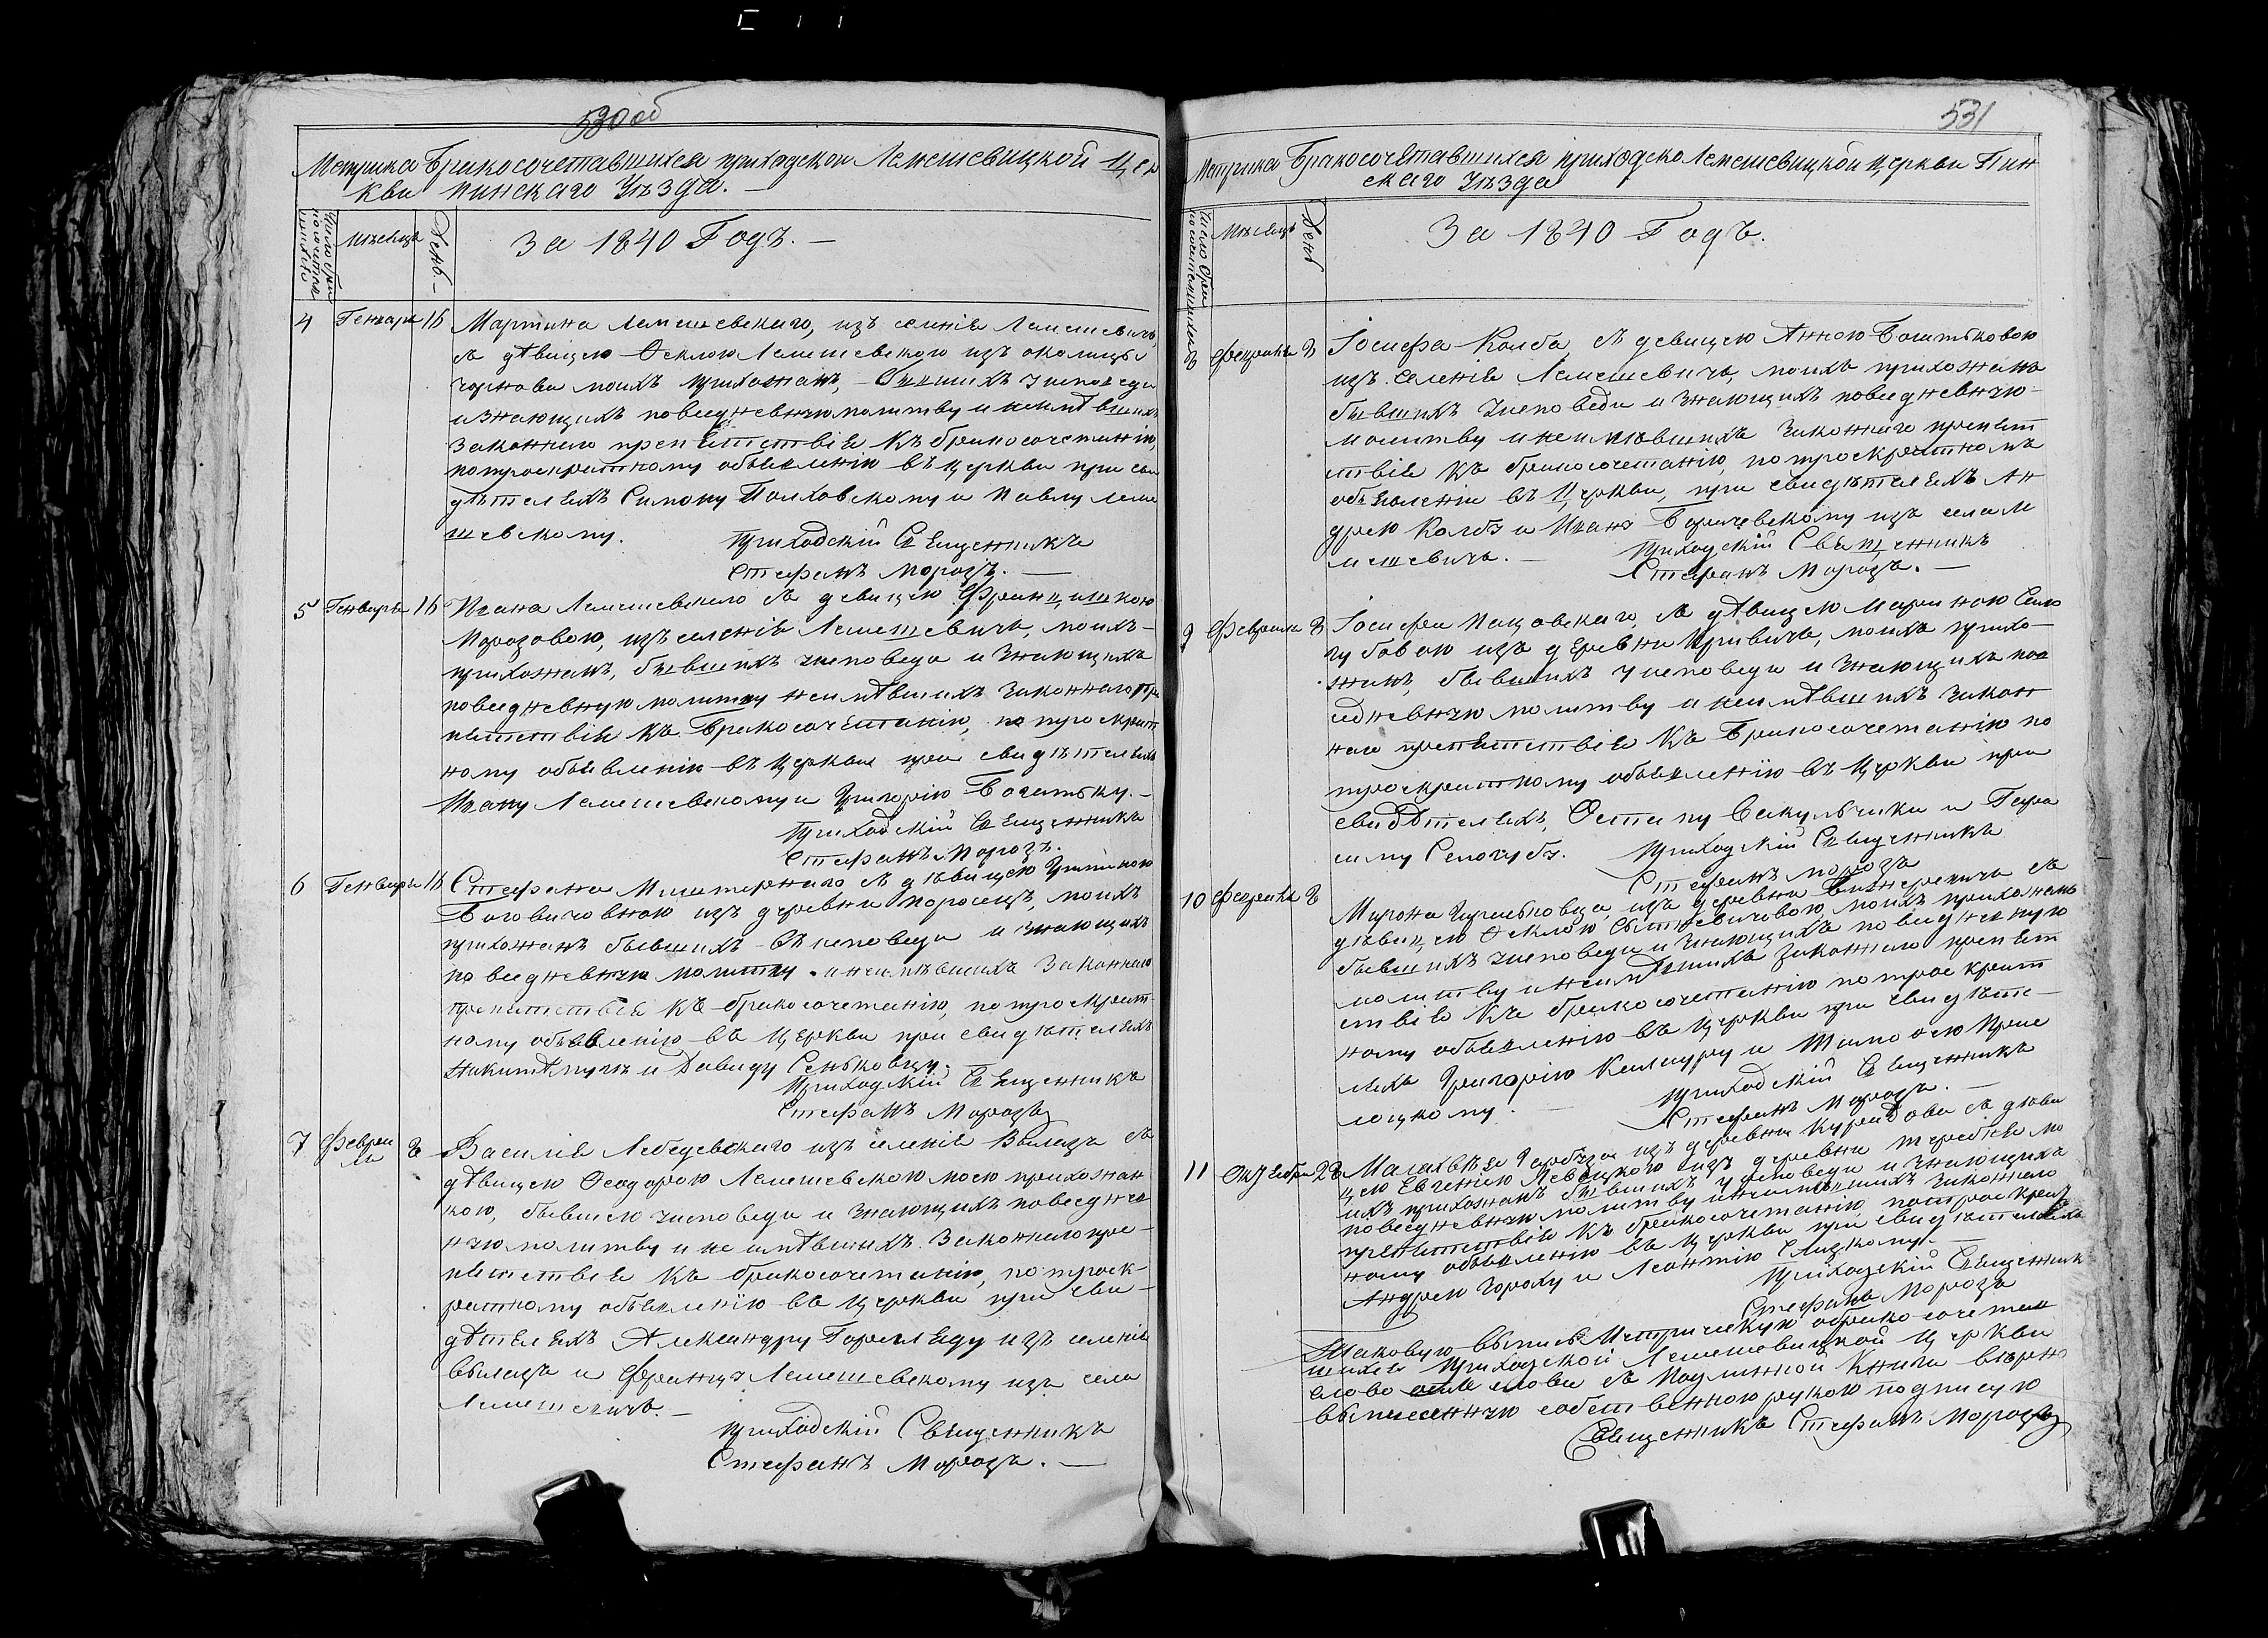 530 об
Метрика Бракосочетавшихся приходской Лемешевицкой Цер
кви Пинскаго Уѣзда. —
Мѣсяцъ
День —
За 1840 Годъ. —
4 Генваря 16 Мартина Лемешевскаго, изъ селенія Лемешевичъ,
съ дѣвицею Феклою Лемешевскою изъ околицы
моихъ прихожанъ, бывшихъ уисповеди
и знающихъ повседневную молитву и неимѣвшихъ
законнаго препятствія къ бракосочетанію,
потроекратному объявленію въ церкви при сви
дѣтеляхъ Симону Полховскому и Павлу Леме
шевскому. Приходскій Священникъ
Стефанъ Морозъ. —
5 Генваря 16 Ивана Лемешевскаго съ девицею Францишкою
Морозовою, изъ селенія Лемешевичъ, моихъ —
прихожанъ, бывшихъ уисповеди и знающихъ
повседневную молитву неимѣвшихъ законнаго пре
пятствія къ Бракосочетанію, по троекрат
ному объявленію въ церкви при свидѣтеляхъ
Ивану Лемешевскому и Григорію Богатыку. —
Приходскій Священникъ
Стефанъ Морозъ.
6 Генваря 16 Стефана съ дѣвицею
изъ деревни моихъ
прихожанъ бывшихъ въ исповеди и знающихъ
повседневную молитву. и неимѣвшихъ законнаго
препятствія къ бракосочетанію, потроекрат
ному объявленію въ церкви при свидѣтеляхъ
и Давиду Сеньковцу.
Приходскій Священникъ
Стефанъ Морозъ
7 Февра
ля 8 Василія Лебедевскаго изъ селенія Вылазъ съ
дѣвицею Феодорою Лемешевскою моею прихожан
кою, бывшею уисповеди и знающихъ повседнев
ную молитву и не имѣвшихъ законнаго пре —
пятствія къ бракосочетанію, потроек —
ратному объявленію въ церкви при сви —
дѣтеляхъ Александру изъ селенія
Вылазъ и Францу Лемешевскому изъ села
Лемешевичъ. —
Приходскій Священникъ
Стефанъ Морозъ. —
531
Метрика Бракосочетавшихся приходско Лемешевицкой церкви Пин
скаго Уѣзда
Мѣсяцъ
День
За 1840 Годъ.
8 Февраля 8 Іосифа Колба, съ девицею Анною Богатыковою
изъ селенія Лемешевичъ, моихъ прихожанъ
бывшихъ уисповеди и знающихъ повседневную —
молитву и неимѣвшихъ законнаго препят
ствія къ бракосочетанію, потроекратномъ
объявленіи въ Церкви, при свидѣтеляхъ Ан
дрею Колбу и Ивану Боричевскому изъ села Ле
мешевичъ. — Приходскій Священникъ
Стефанъ Морозъ. —
9 Февраля 8 Іосифа съ дѣвицею Мариною Село
губовою изъ деревни моихъ прихо —
жанъ, бывшихъ уисповеди и знающихъ пов
седневную молитву и неимѣвшихъ закон
наго препятствія къ Бракосочетанію по
троекратному объявленію въ церкви при
свидѣтеляхъ, Остапу и Гера
симу Селогубу. Приходскій Священникъ
Стефанъ Морозъ
10 Февраля 8 Мирона изъ деревни съ
дѣвицею Феклою моихъ прихожанъ
бывшихъ уисповеди и знающихъ повседневную
молитву и неимѣвшихъ законнаго препят
ствія къ бракосочетанію потроекрат
ному объявленію въ церкви при свидѣте —
ляхъ Григорію и
Приходскій Священникъ
Стефанъ Морозъ. —
11 Октября 28 изъ деревни съ дѣви
цею Евгеніею изъ деревни мо
ихъ прихожанъ бывшихъ уисповеди и знающихъ
повседневную молитву и неимѣвшихъ законнаго
препятствія къ бракосочетанію, потроекрат
ному объявленію въ церкви при свидѣтеляхъ
Андрею Гороху и Леонтію
Приходскій Священникъ
Стефанъ Морозъ
Таковую выпись Метрическую обракосочетав
шихся Приходской Лемешевицкой Церкви
слово слова съ Подлинной Книги вѣрно
выписанную собственною рукою подписую
Священникъ Стефанъ Морозъ